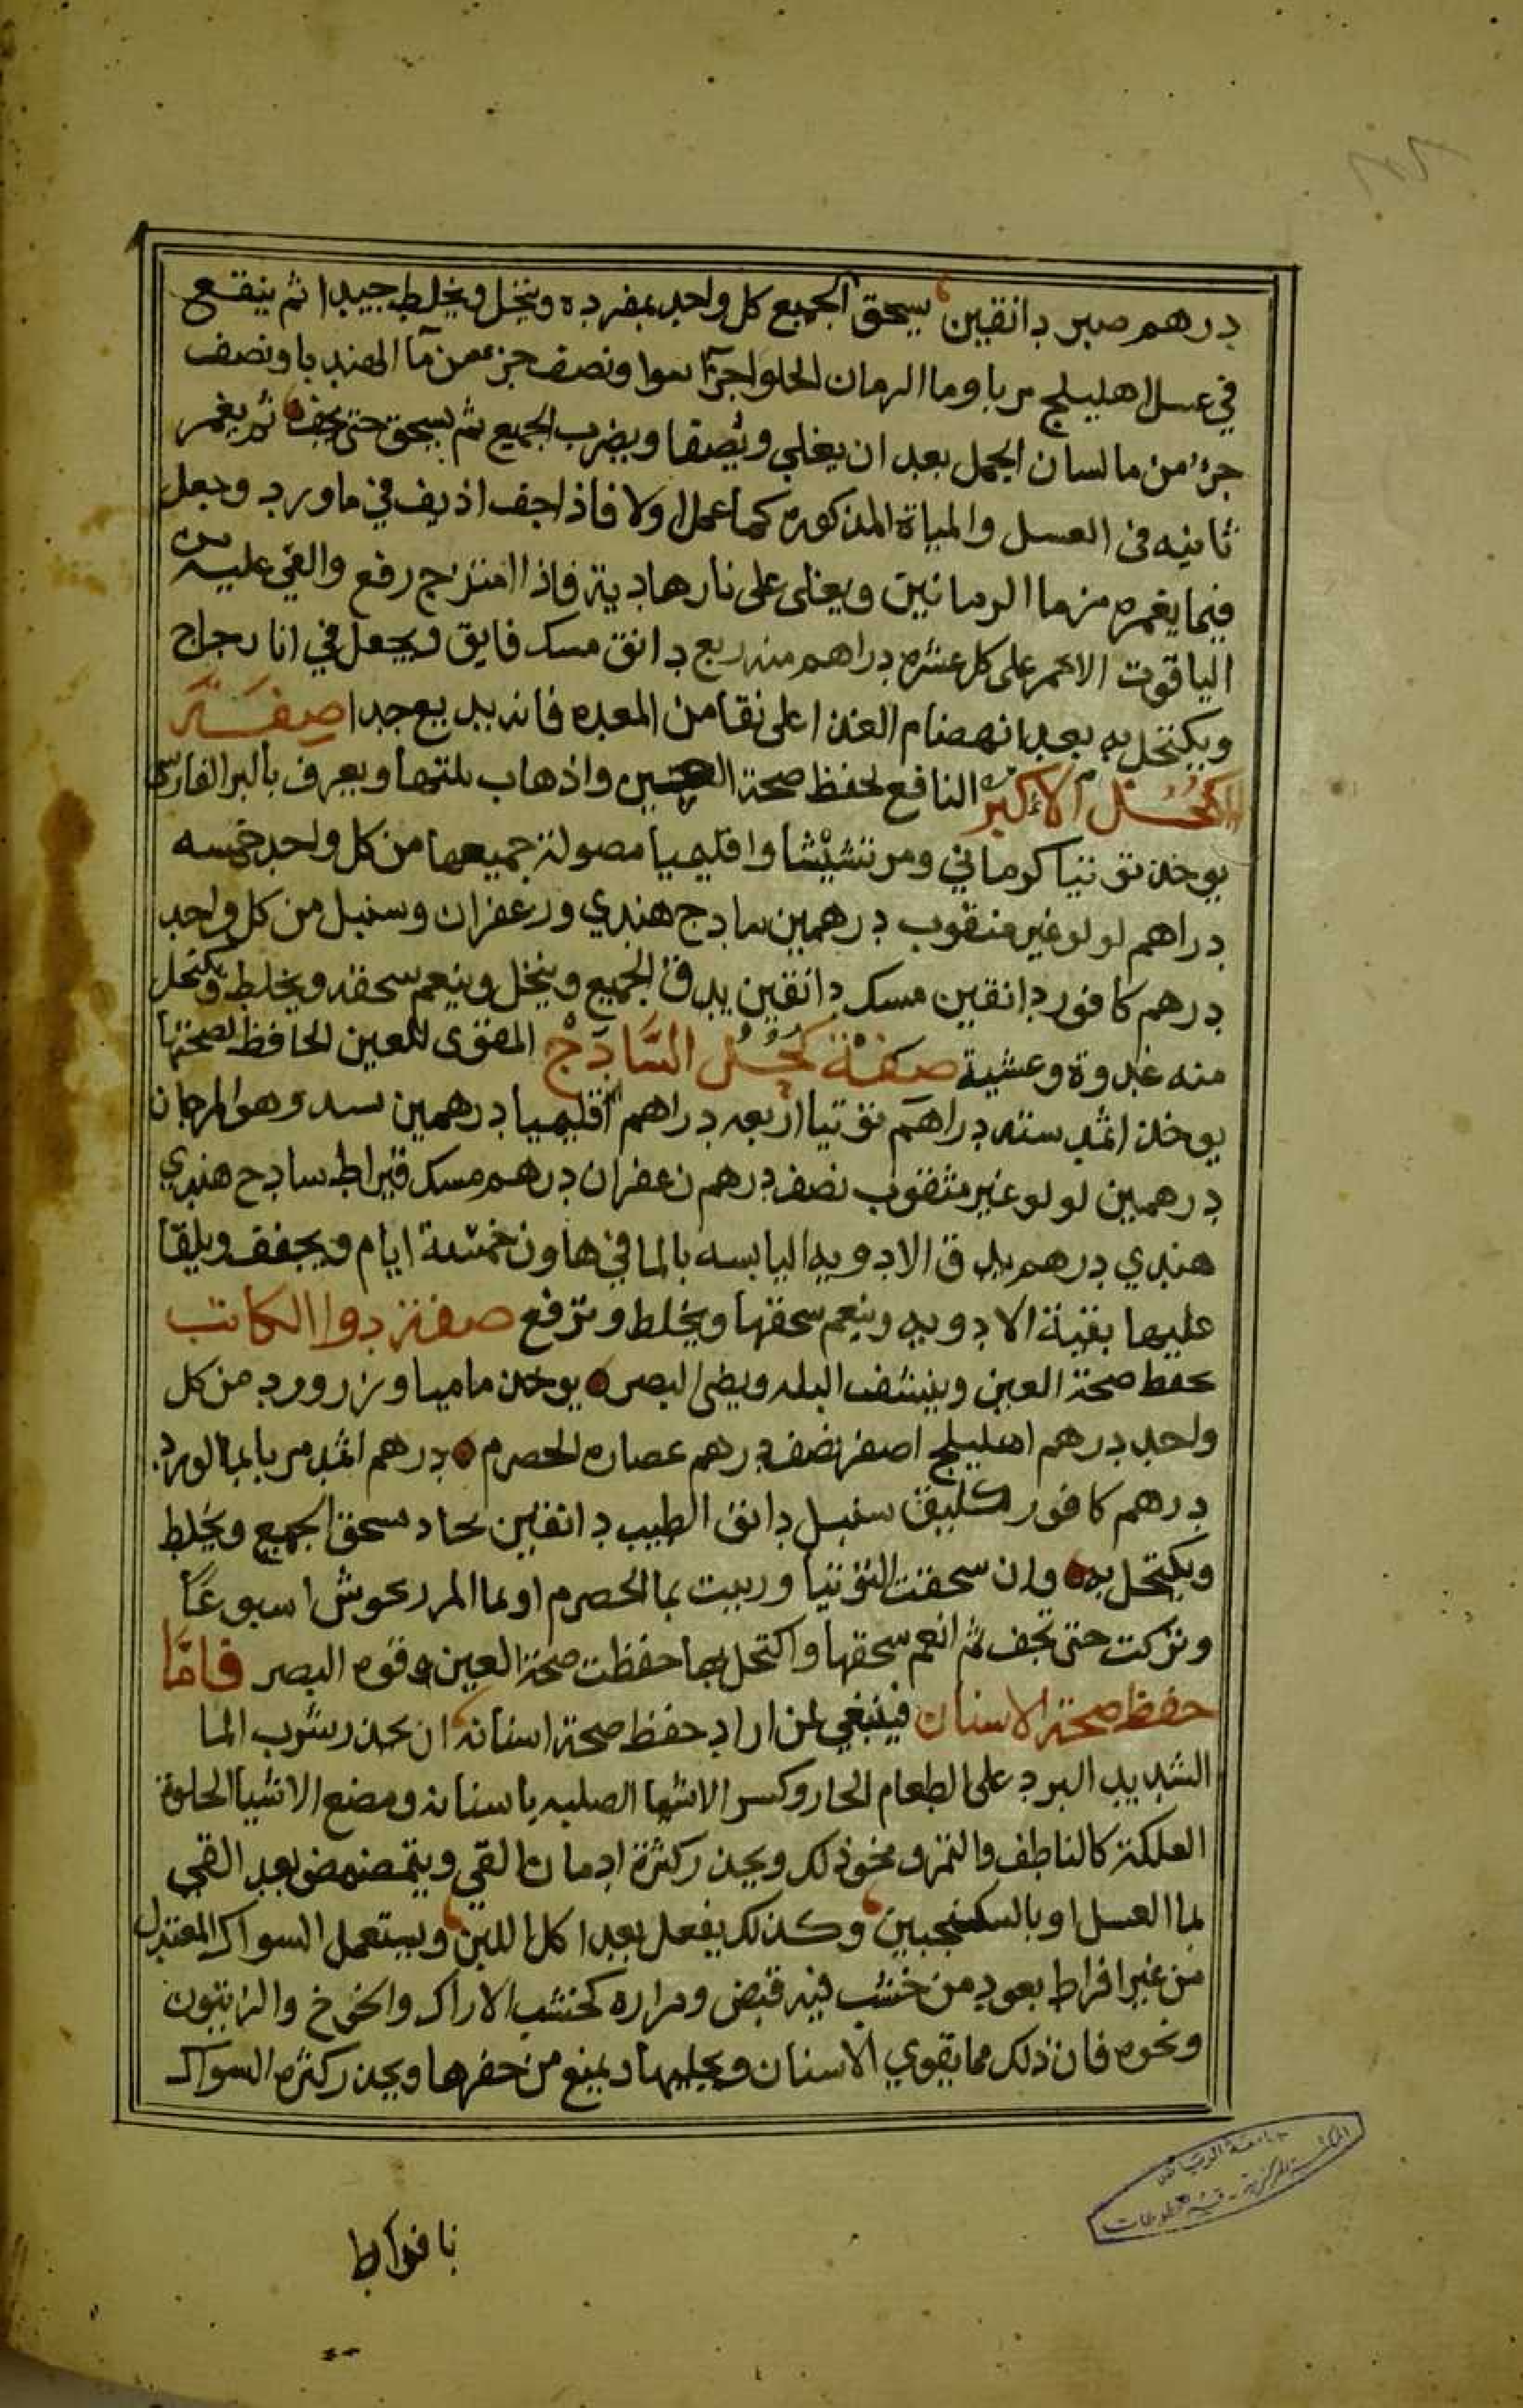 درهم صبر دانقين يسحق الجميع كل واحد بمفرده وينخل ويخلط جيدا ثم ينقع
في عسل اهليلج مربا وما الرمان الحلو اجزآ سوا ونصف جزء من مآ الهندبا ونصف
جزء من ما لسان الحمل بعد ان يغلي ويصفا ويضرب الجميع ثم يسحق حتى يجف ثم يغمر
ثانيه فى العسل والمياة المذكوره كما عمل اولا فاذا جف اذيف في ماورد وجعل
فيما يغمره من ما الرمانين ويغلى على نار هادية فاذا امتزج رفع والقي عليه من
الياقوت الاحمر على كل عشره دراهم منه ربع دانق مسك فايق ويجعل في انا زجاج
ويكتحل به بعد انهضام الغذا على نقا من المعده فانه بديع جدا صفة
الكحل الاكبر النافع لحفظ صحة العينين واذهاب بلتها ويعرف بالبر الفارسي
يوخذ توتيا كرماني ومرتشيشا واقليميا مصولة جميعها من كل واحد خمسه
دراهم لولو غير مثقوب درهمين سادج هندي وزعفران وسنبل من كل واحد
درهم كافور دانقين مسك دانقين يدق الجميع وينخل وينعم سحقه ويخلط ويكتحل
منه غدوة وعشية صفة كحل السادج المقوى للعين الحافظ لصحتها
يوخذ اثمد سته دراهم توتيا اربعه دراهم اقليميا درهمين بسد وهو المرجان
درهمين لولو غير مثقوب نصف درهم زعفران درهم مسك قيراط سادح هندي
هندي درهم يدق الادويه اليابسه بالما في هاون خمسة ايام ويجفف ويلقا
عليها بقية الادويه وينعم سحقها ويخلط وترفع صفة دوا الكاتب
يحفظ صحة العين وينشف البله ويضى البصر يوخذ ماميا وبزر ورد من كل
واحد درهم اهليلج اصفر نصف درهم عصاره الحصرم درهم اثمد مربا بما الورد
درهم كافور سنبل دانق الطيب دانقين يحاد سحق الجميع ويخلط
ويكتحل به وان سحقت التوتيا وربيت بما الحصرم او بما المرزنحوش اسبوعا
وتركت حتى تجف ثم انعم سحقها واكتحل بها حفظت صحة العين وقوه البصر فاما
حفظ صحة الاسنان فينبغي لمن اراد حفظ صحة اسنانه ان يحذر شرب الما
الشديد البرد على الطعام الحار وكسر الاشيا الصلبه باسنانه ومضع الاشيا الحلوة
العلكة كالناطف والتمر ونحو ذلك ويحذر كثرة ادمان القي ويتمضمض بعد القي
بما العسل او بالسكنجبين وكذلك يفعل بعد اكل اللبن ويستعمل السواك المعتدل
من غير افراط بعود من خشب فيه قبض ومراره كخشب الاراك والخوخ والزيتون
ونحوه فان ذلك مما يقوي الاسنان ويجليها ويمنع من حفرها ويحذر كثره السواك
جامعة الرياض
المكتبة المركزية - قسم المخطوطات